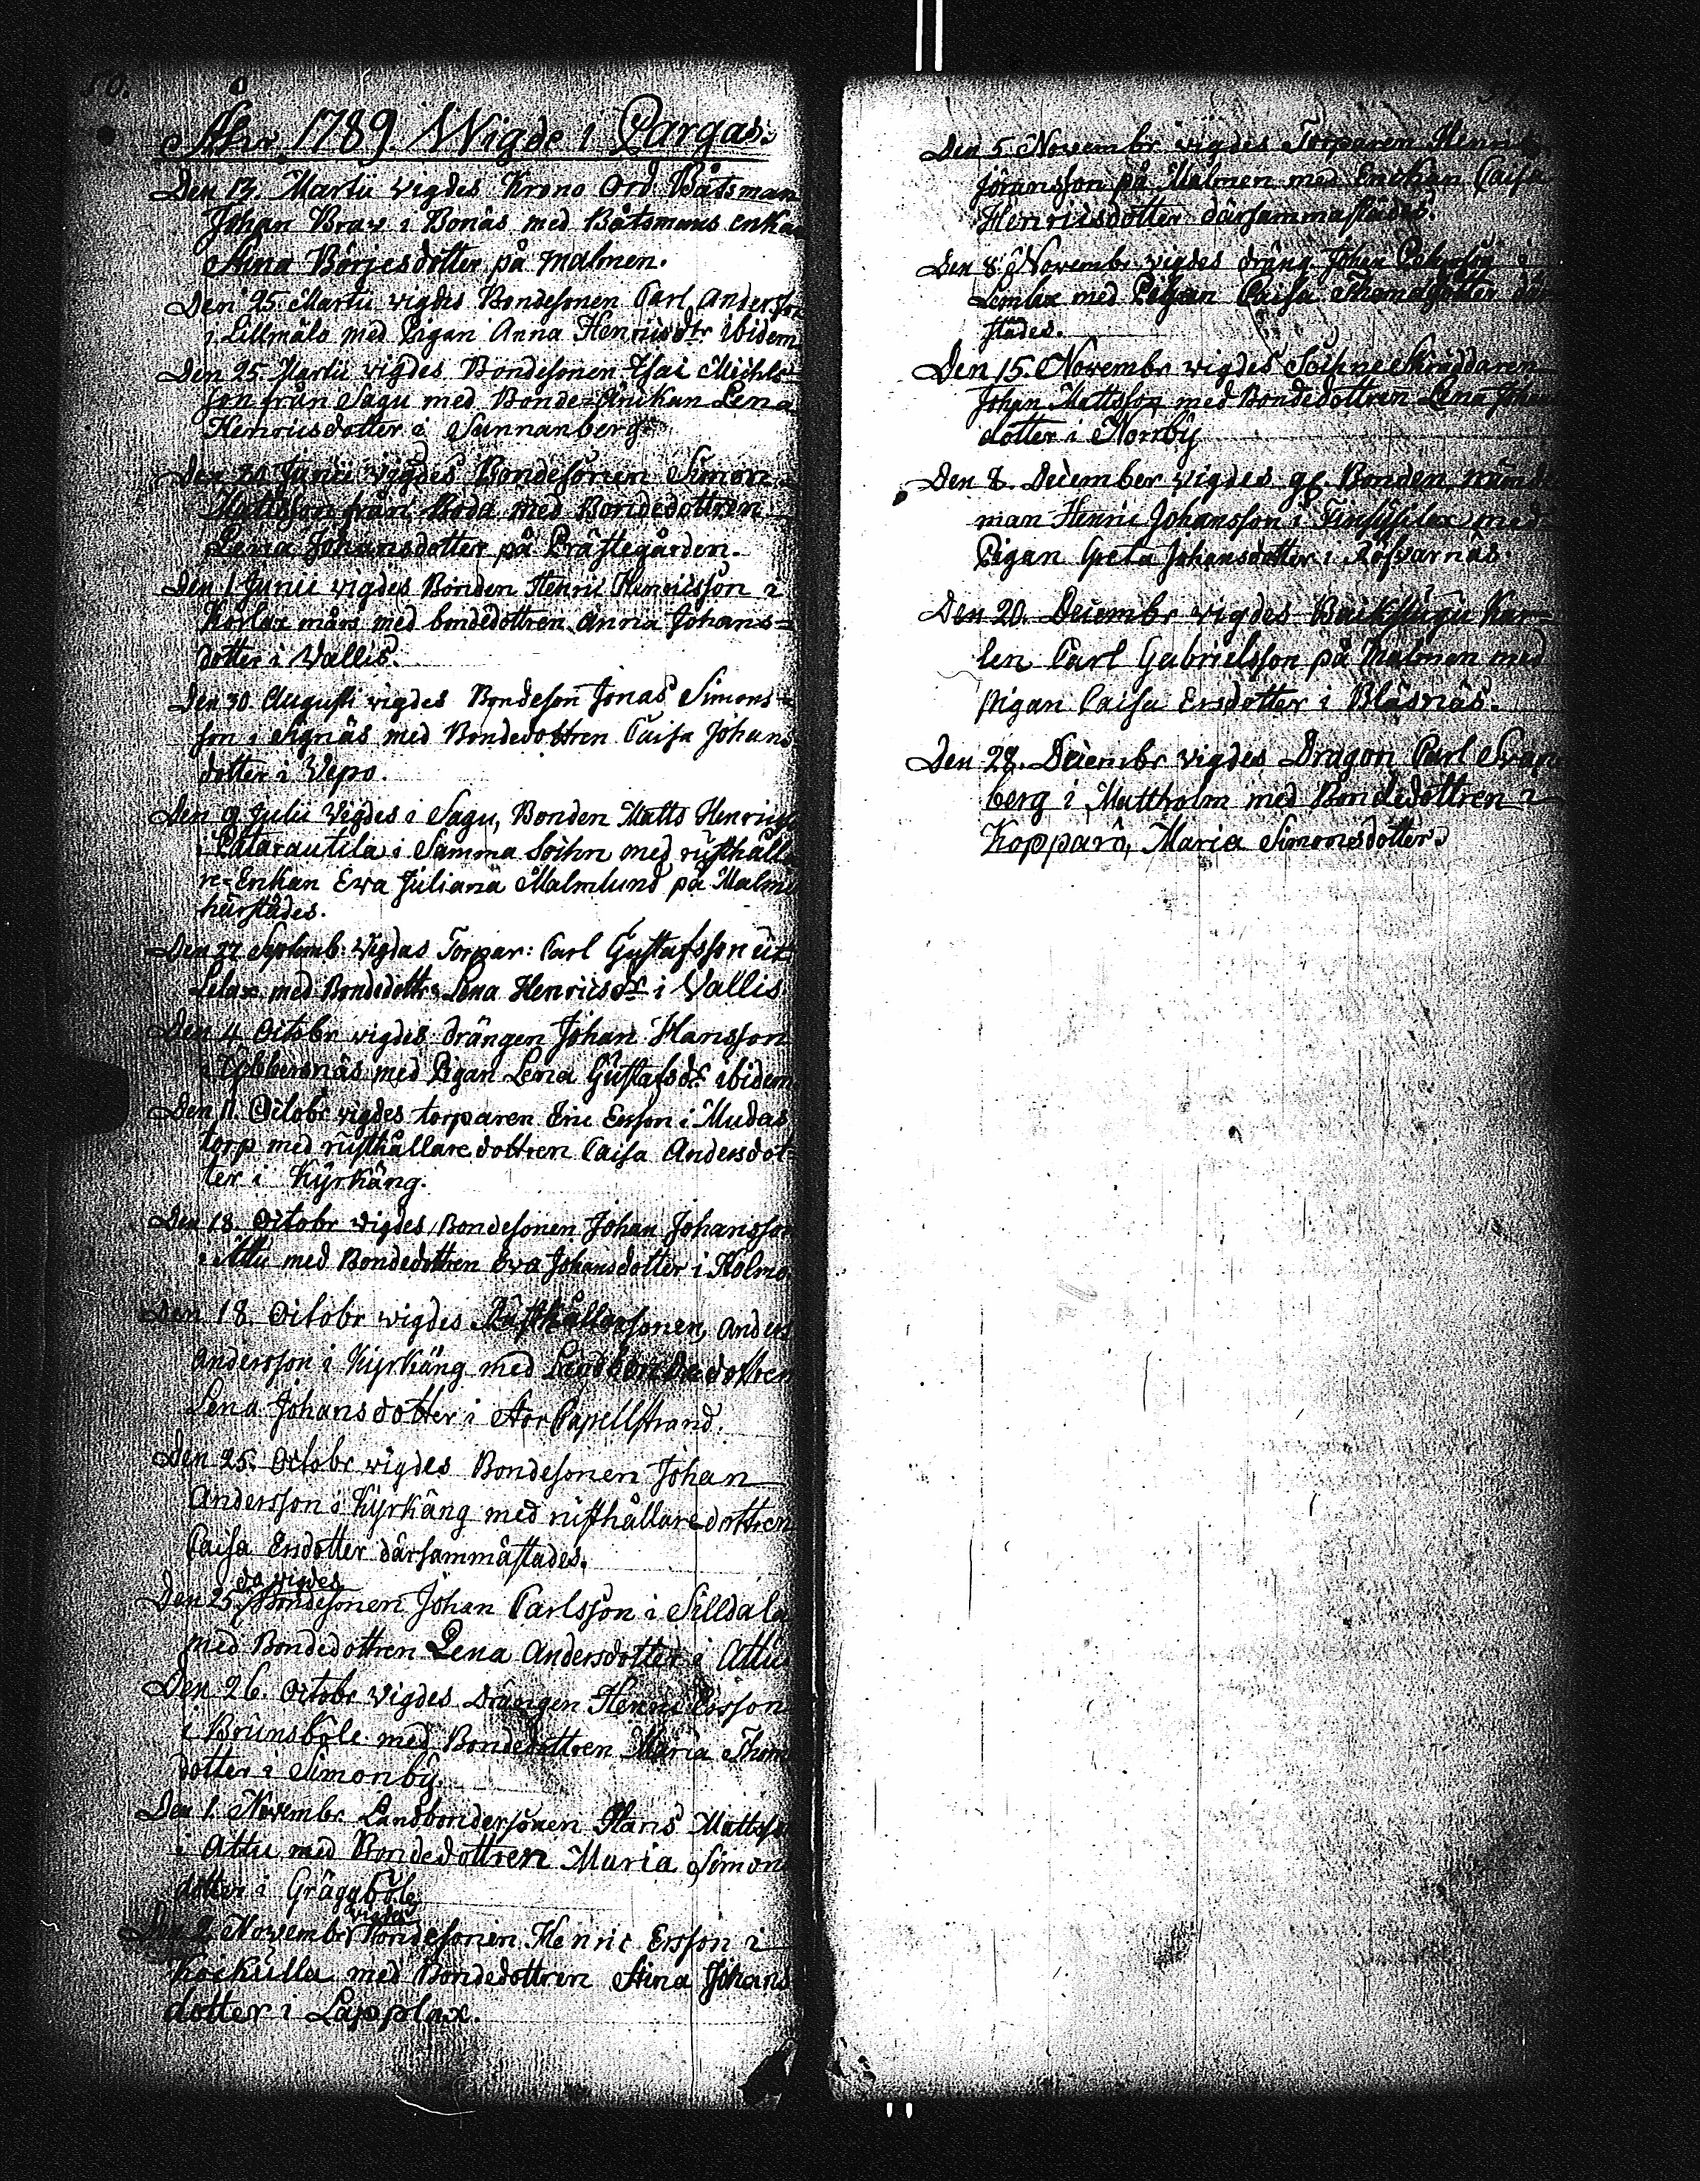 50.
Åhr 1789. Wigde i Pargas.
Den 13. Martii vigdes Krono Ord. Båtsman
Johan Braw i Bonäs med Båtsmans enkan
Stina Börjesdotter på Malmen.
Den 25 Martii vigdes Bondesonen Carl Andersson
i Lillmälö med Pigan Anna Henricsdtr ibidem
Den 25. Martii vigdes Bondesonen Isai Michls-
son från Sagu med Bonde-Änkan Lena
Henricsdotter i Sunnanberg.
Den Junii vigdes Bondesonen Simon
Mattsson från Boda med Bondedottren
Lena Johansdotter på Prästegården.
Den 1 Junii vigdes Bonden Henric Henricsson i
Korlax mårs med bondedottren Anna Johans-
dotter i Vallis.
Den 30. Augusti vigdes Bondeson Jonas Simons-
son i Ångnäs med Bondedottren Caisa Johans-
dotter i Vepo.
Den 9 Julii Vigdes i Sagu, Bonden Matts Henrics
i Patarautila i Samma Sokn med rusthålla
re-Enkan Ewa Juliana Malmlund på Malmen
härstädes.
Den 27 Septemb: vigdas Torpar: Carl Gustafsson ut
Lelax med Bondedottr: Lena Henricsdr i Vallis
Den 4. Octobr vigdes drängen Johan Hansson
i med Pigan Lena Gustafsdr ibidem
Den 11. Octobr vigdes torparen Eric Ersson i Mudas
torp med rusthållare dottren Caisa Andersdot-
ter i Kyrkäng.
Den 18. Octobr vigdes Bondesonen Johan Johansson
i Attu med Bondedottren Eva Johansdotter i Holmo
Den 18. Octobr vigdes Rusthållarsonen, Anders
Andersson i Kyrkäng med Landbondedottren
Lena Johansdotter i Stor Capellstrand.
Den 25. Octobr vigdes Bondesonen Johan
Andersson i Kyrkäng med rusthållaredottren
Caisa Ersdotter därsammastades.
da vigdes
Den 25. Bondesonen Johan Carlsson i Silldala
med Bondedottren Lena Andersdotter i Attu
Den 26. Octobr vigdes drängen Henric Ersson
i Brunskole med Bondedottren Maria Thom
dotter i Simonby.
Den 1. Novembr Landbondersonen Hans Mattss
i Attu med Bondedottren Maria Simon
dotter i Gräggböle
vigdes
Den 2. Novembr Bondesonen Henric Ersson i
Kockulla med Bondedottren Stina Johans
dotter i Lapplax.
Den 5. Novembr vigdes Torparen Henric
Jöransson på Malmen med Enckan Caisa
Henricsdotter därsammastädes.
Den 8. Novembr vigdes dräng Johan i
Lemlax med Pigan Caisa Thomasdotter där
städes.
Den 15. Novembr vigdes Sockne Skräddaren
Johan Mattsson med Bondedottren Lena Johans
dotter i Norrby
Den 8. December vigdes gf. Bonden, nämnde
man Henric Johansson i med
Pigan Greta Johansdotter i Röfvarnäs.
Den 20. Decembr vigdes Backstugu Kar-
len Carl Gabrielsson på Malmen med
Pigan Caisa Ersdotter i Bläsnäs.
Den 28. Decembr vigdes Dragon Carl Svan
berg i Mattholm med Bondedottren i
Kopparö, Maria Simonsdotter.